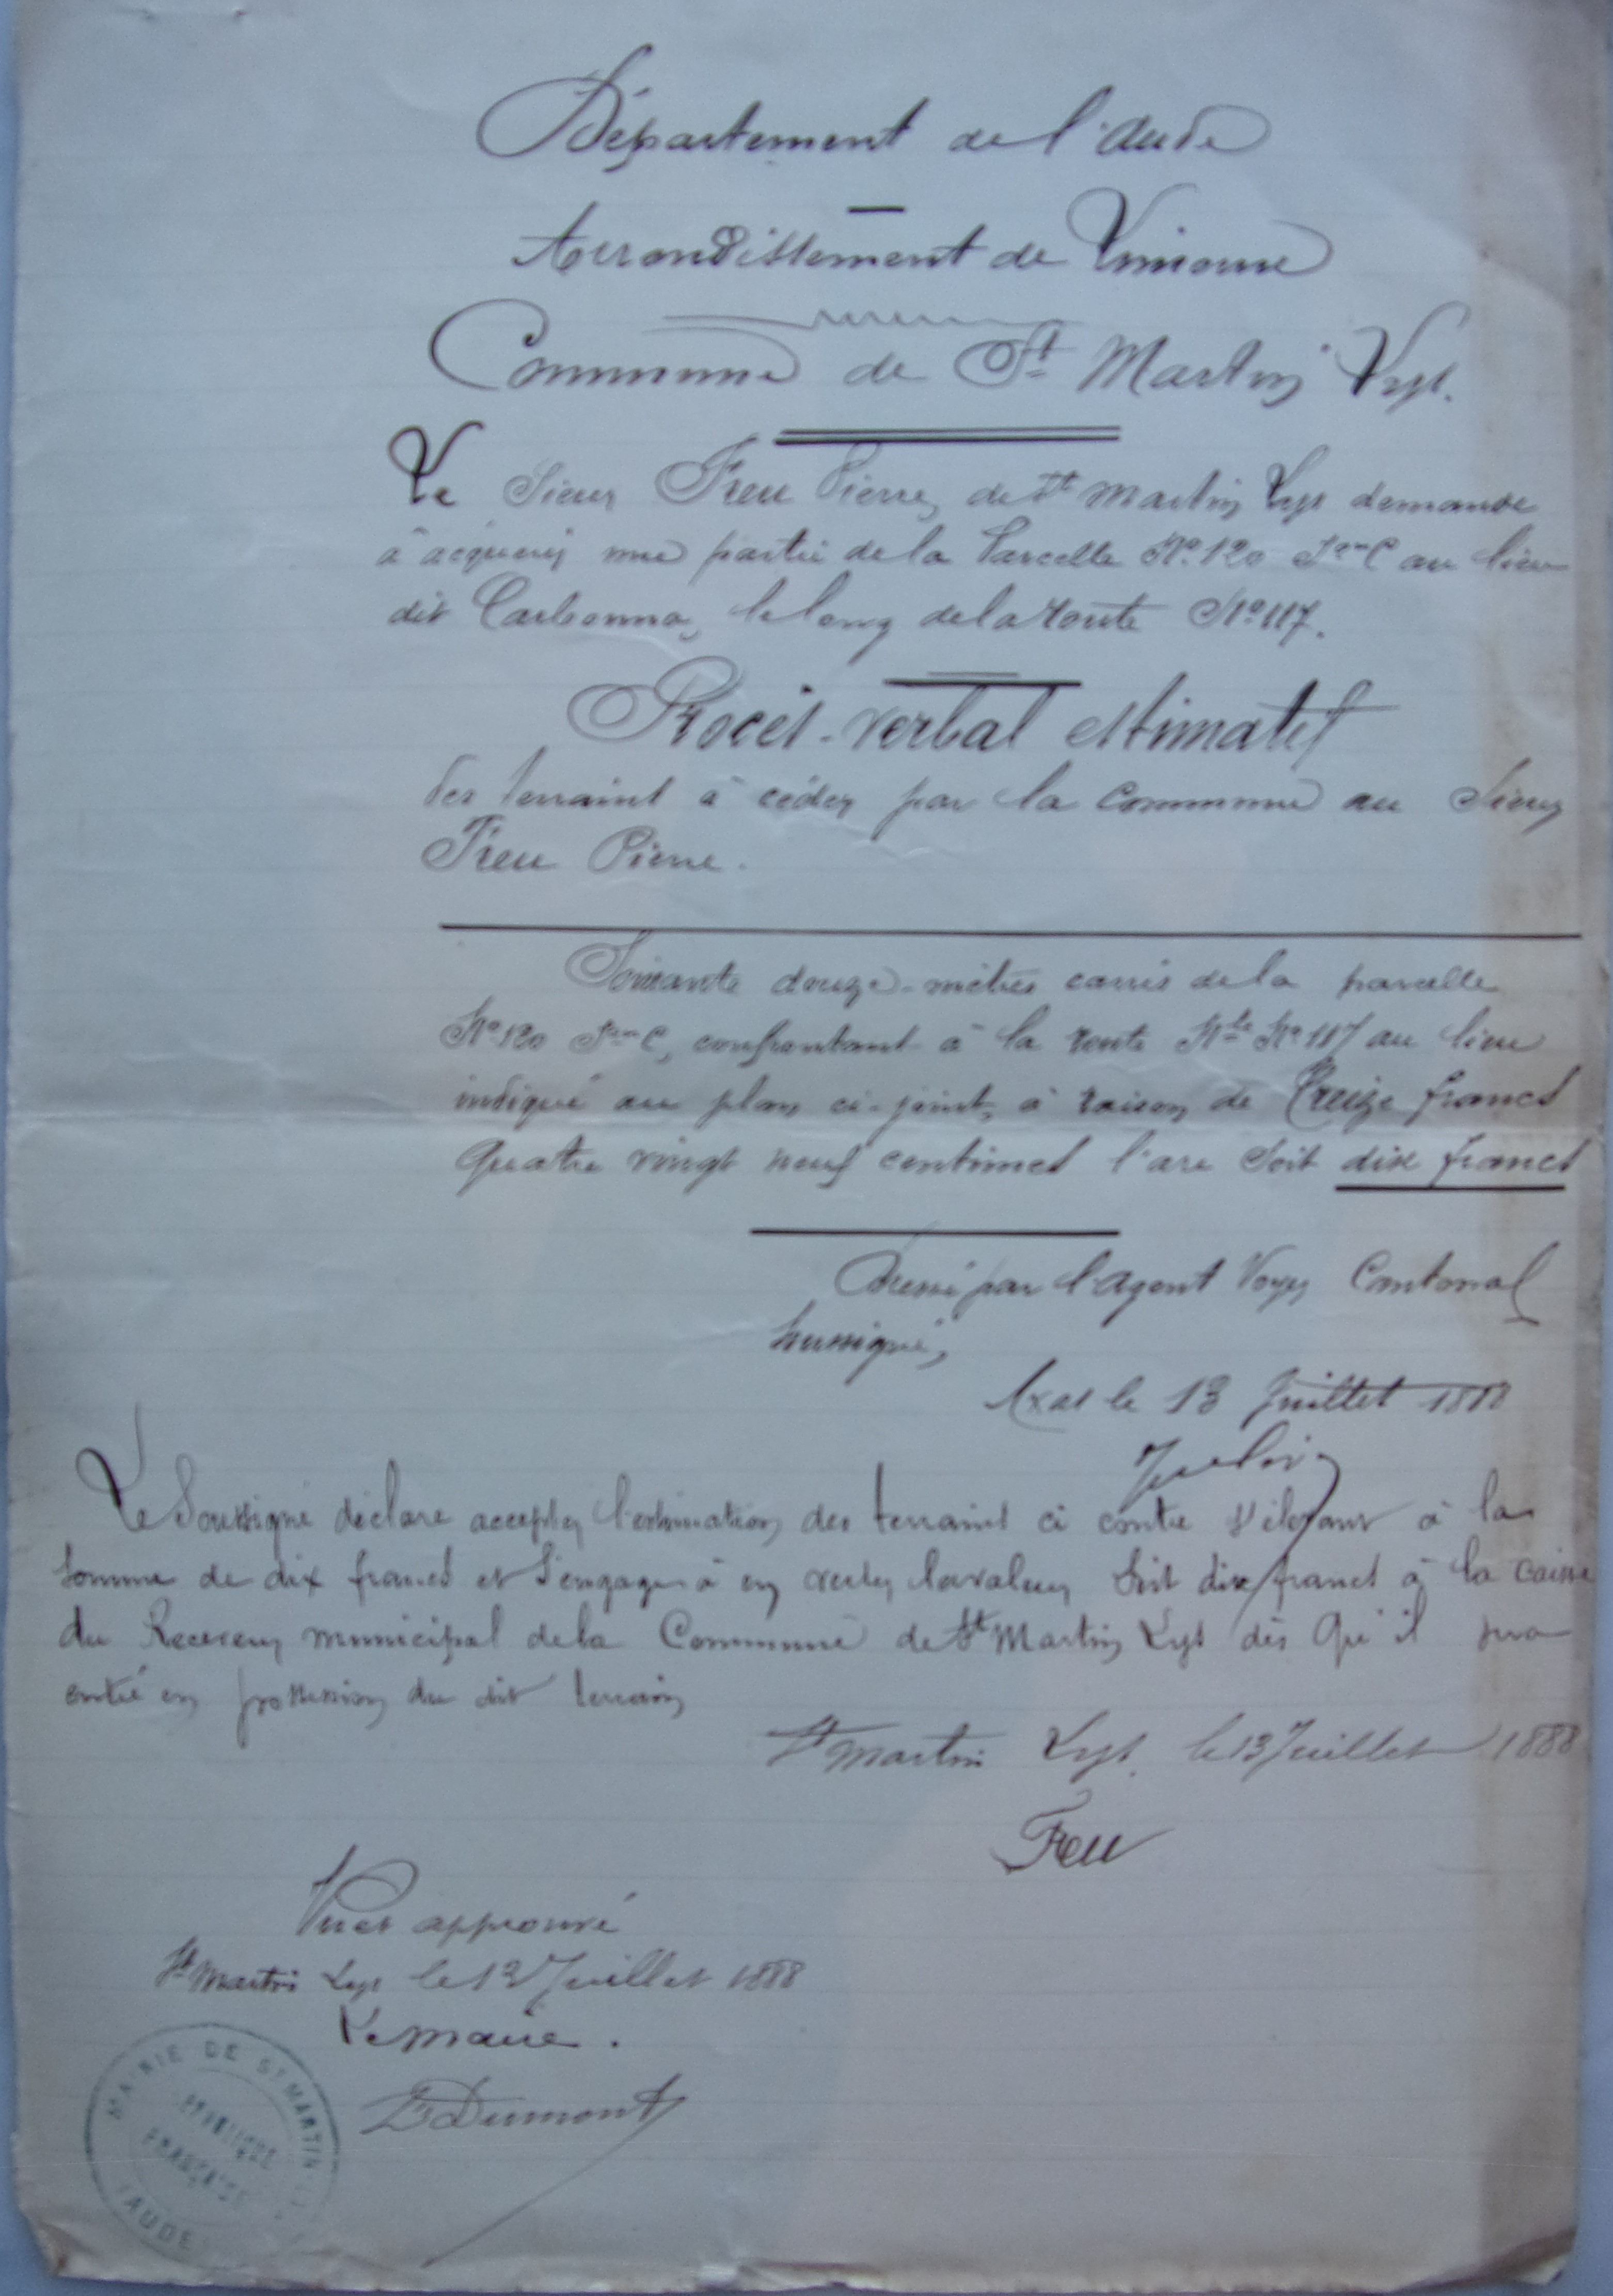 Département de l'Aude
Arrondissement de Limoux
Commune de St Martin Lys.
Le Sieur Freu Pierre, de St Martin Lys demande
à acquérir une partie de la Parcelle No 120 Son C au lieu
dit Carbonna, le long de la route No 117.
Procès-verbal estimatif
des terrains à céder par la commune au Sieur
Freu Pierre.
Soixante douze-mètres carrés de la parcelle
No 120 Son C, confrontant à la route Nle No 117 au lieu
indiqué au plan ci-joint, à raison de Treize francs
quatre vingt neuf centimes l'are soit dix francs
Dressé par l'Agent Voyer Cantonal
soussigné,
Axat le 13 Juillet 1888
Le Soussigné déclare accepter l'estimation des terrains ci contre s'élevant à la
somme de dix francs et s'engage à en verser la valeur soit dix francs à la caisse
du Receveur municipal de la Commune de St Martin Lys dès qu'il sera
entré en possession du dit terrain
St Martin Lys. le 13 Juillet 1888
Freu
Vu et approuvé
St Martin Lys le 13 Juillet 1888
Le maire.
Dumont
MAIRIE DE ST MARTIN
RÉPUBLIQUE
FRANÇAISE
AUDE